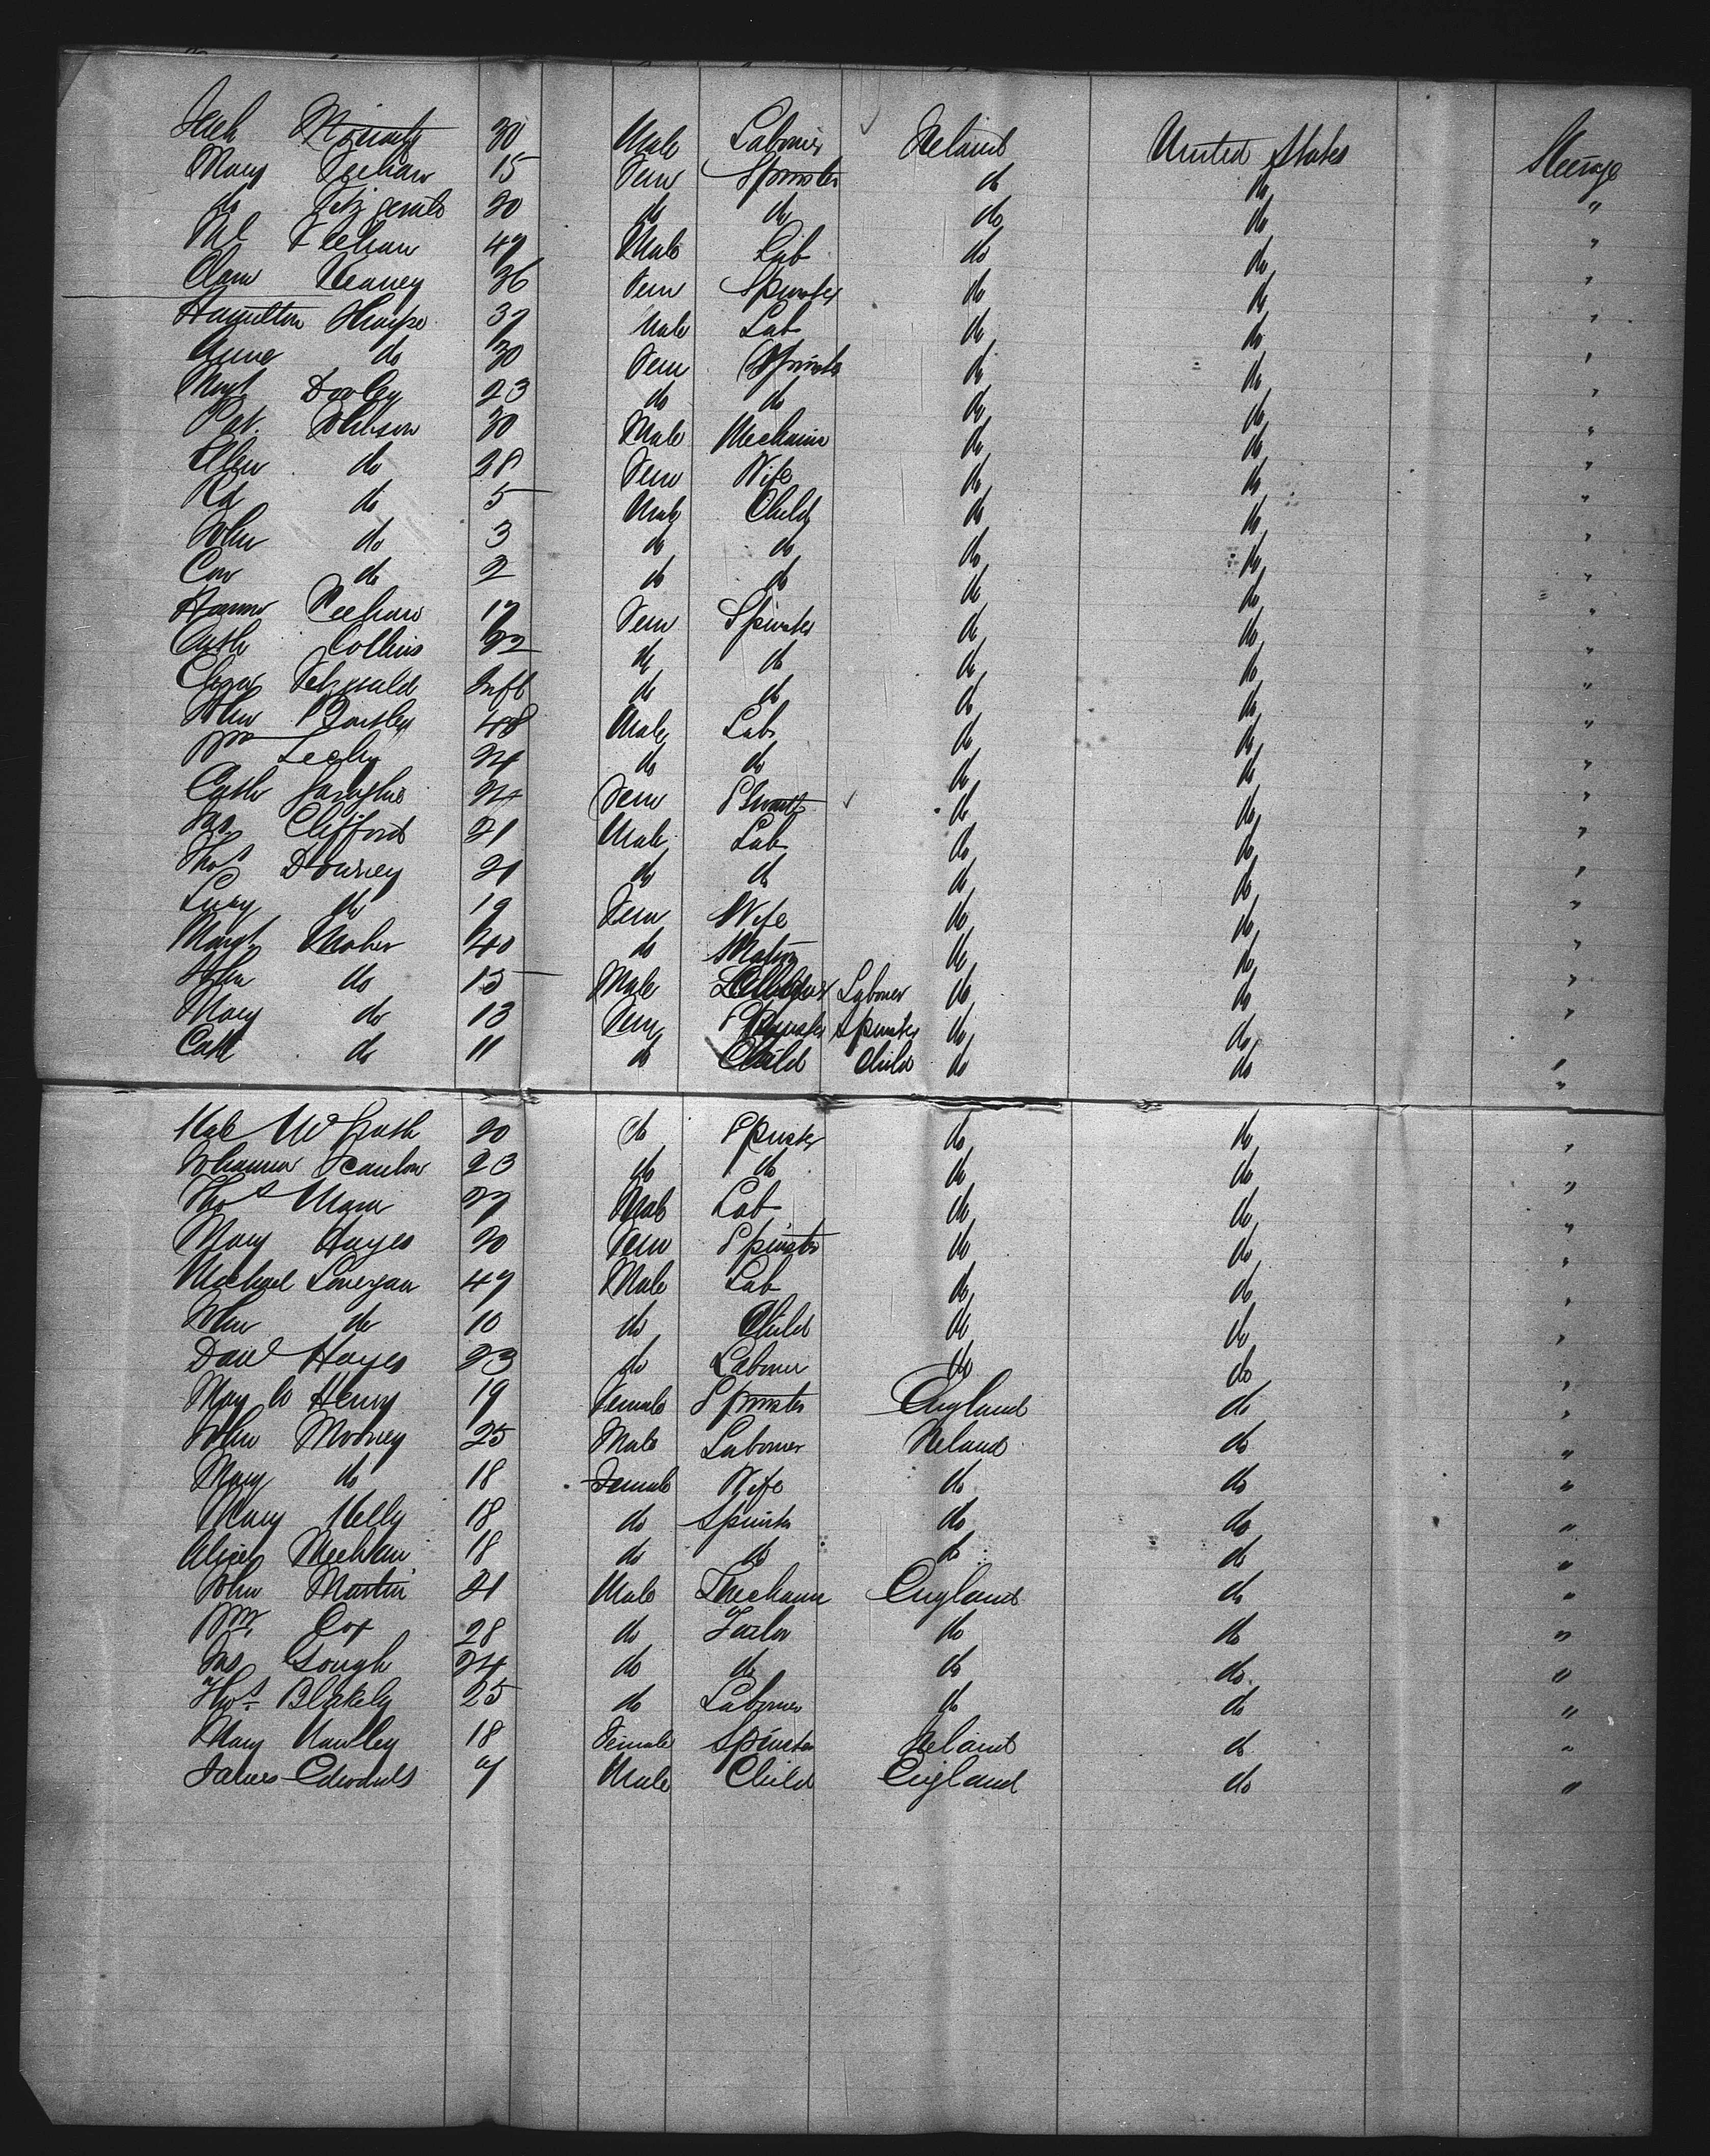 Moriarty 30 Male Laborer Ireland United States Steerage
Mary 15 Fem Spinster do do "
do Fitzgerald 20 do do do do "
Ml 47 Male Lab do do "
36 Fem Spinster do do "
Hamilton 37 Male Lab do do "
Anne do 30 Fem Spinster do do "
Margt Dooley 23 do do do do "
Pat. 30 Male Mechanic do do "
Ellen do 28 Fem Wife do do "
do 5 Male Child do do "
John do 3 do do do do "
Con do 2 do do do do "
17 Fem Spinster do do "
Cath Collins 22 do do do do "
Inft do do do do "
John 48 Male Lab do do "
Wm 24 do do do do "
Cath 24 Fem Spinst do do "
Jas. Clifford 21 Male Lab do do "
Thos Downey 21 do do do do "
Lucy do 19 Fem Wife do do "
Margt Maher 40 do Matron do do "
John do 15 Male Laborer do do "
Mary do 13 Fem Spinster Spinster do do "
Cath do 11 do Child Child do do "
Kate McGrath 20 do Spinster do do "
Johanna Scanlon 23 do do do do "
Thos 27 Male Lab do do "
Mary Hayes 20 Fem Spinster do do "
Michael Lonergan 47 Male Lab do do "
John do 10 do Child do do "
Danl Hayes 23 do Laborer do do "
Henry 19 Female Spinster England do "
John Mooney 25 Male Laborer Ireland do "
Mary do 18 Female Wife do do "
Mary Kelly 18 do Spinster do do "
Alice Meehan 18 do do do do "
John Martin 21 Male Mechanic England do "
Wm Cox 28 do Tailor do do "
Jas Gough 24 do do do do "
Thos Blakely 25 do Laborer do do "
Mary 18 Female Spinster Ireland do "
James Edwards 7 Male Child England do "